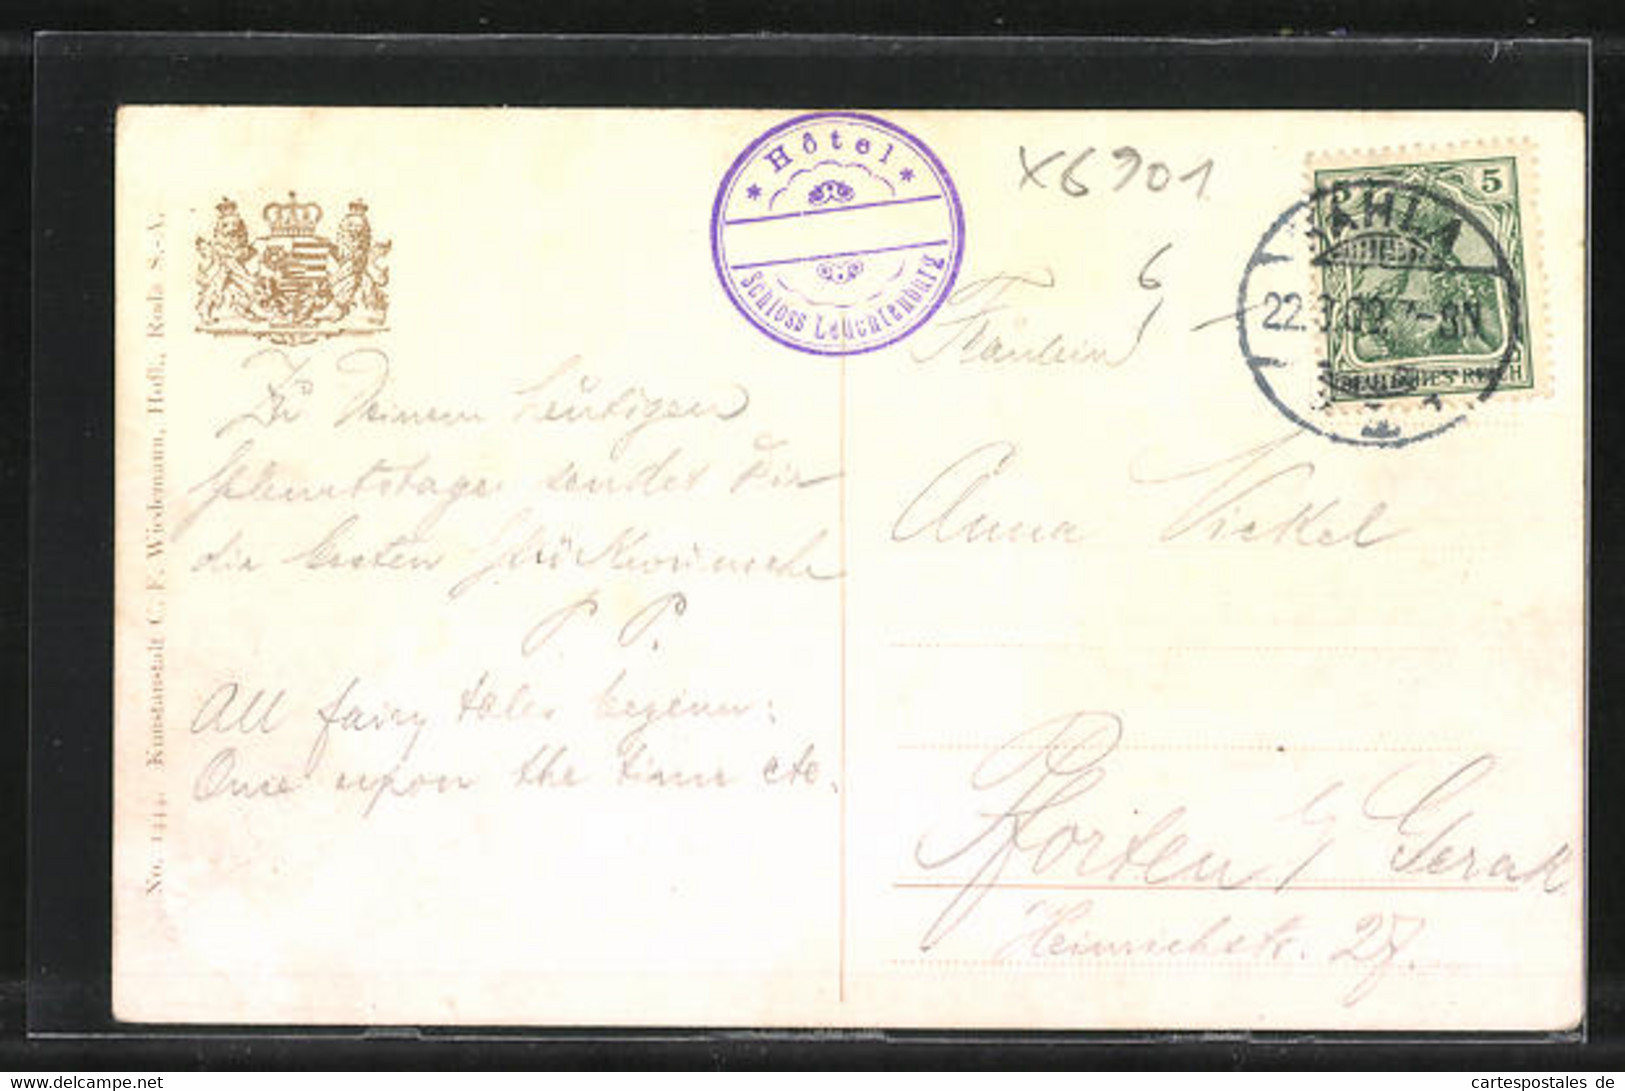 No. 144. Kunstanstalt C. F. Wiedemann, Hofl., Roda S.-A.
* Hôtel *
Schloss Leuchtenburg
X6901
6
5
KAHLA
22.3.09. 7-8N
DEUTSCHES REICH
Fräulein
Anna Nickel
Pforten b/ Gera R
Heinrichstr. 27.
Zu Deinem heutigen
Geburtstage sendet Dir
die besten Glückwünsche
P. P.
All fairy tales beginn:
Once upon the time etc.
cartespostales.de
www.cartespostales.de